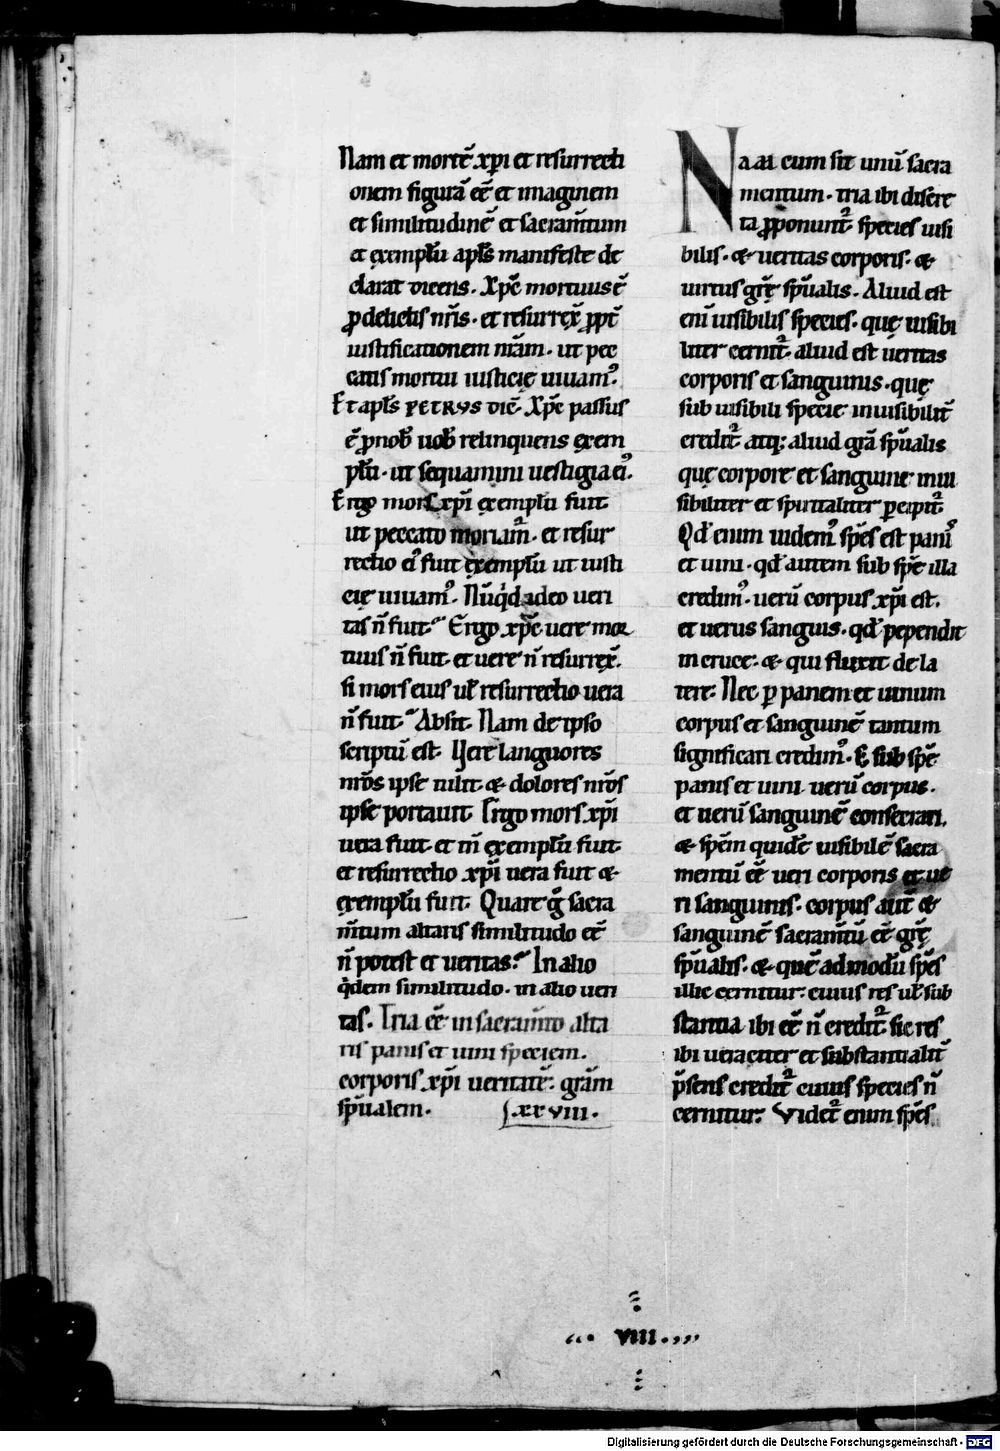 Nam et mortē xp̄i et resurrecti
onem figurā ēē et imaginem
et similitudinē et sacram̄tum
et exemplū apl̄s manifeste de
clarat dicens. Xp̄c mortuus ē
ꝓ delictis nr̄is. et resurrex̄ ꝓpt̄
iustificationem nr̄am. ut pec
catis mortui iusticię uiuam᾿.
Et apl̄s PETRVS dic̄. Xp̄c passus
ē ꝓ nob̄ uob̄ relinquens exem
plū. ut sequamini uestigia ei᾿.
Ergo mors xp̄i exemplū fuit
ut peccato moriam̄. et resur
rectio ei᾿ fuit exemplū ut iusti
cię uiuam᾿. Nūqͥd ideo ueri
tas n̄ fuit. Ergo xp̄c uere mor
tuus n̄ fuit. et uere n̄ resurrex̄.
si mors eius ul̄ resurrectio uera
n̄ fuit. Absit. Nam de ipso
scriptū est. Uere languores
nr̄os ipse tulit. & dolores nr̄os
ipse portauit. Ergo mors xp̄i
uera fuit. et m̄ exemplū fuit
et resurrectio xp̄i uera fuit &
exemplū fuit. Quare g̊ sacra
m̄tum altaris similitudo ēē
n̄ potest et ueritas. In alio
qͥdem similitudo. in alio ueri
tas. Tria ēē in sacram̄to alta
ris panis et uini speciem.
corporis xp̄i ueritatē. grām
sp̄ualem. .xxviii.
NAM cum sit unū sacra
mentum. tria ibi discre
ta ꝓponunt᾿. species uisi
bilis. & ueritas corporis. &
uirtus gr̄ę sp̄ualis. Aliud est
eni᾿ uisibilis species. quę uisibi
liter cernit᾿. aliud est ueritas
corporis et sanguinis. quę
sub uisibili specie inuisibilit̄
credit᾿. atq; aliud gr̄a sp̄ualis
quę corpore et sanguine inui
sibiliter et spiritaliter ꝑcipit᾿.
Qd̄ enim uidem᾿ sp̄es est pani᾿
et uini. qd̄ autem sub sp̄e illa
credim᾿. uerū corpus xp̄i est.
et uerus sanguis. qd̄ pependit
in cruce. & qui fluxit de la
tere. Nec ꝑ panem et uinum
corpus et sanguinē tantum
significari credim᾿. & sub sp̄e
panis et uini uerū corpus.
et uerū sanguinē consecrari.
& sp̄em quidē uisibilē sacra
mentū ēē ueri corporis et ue
ri sanguinis. corpus aut̄ &
sanguinē sacram̄tū ēē gr̄ę
sp̄ualis. & quē ad modū sp̄es
illic cernitur. cuius res ul̄ sub
stantia ibi ēē n̄ credit᾿. sic res
ibi ueraciter et substantialit̄
p̄sens credit᾿ cuius species n̄
cernitur. Videt᾿ enim sp̄es
viii
Digitalisierung gefördert durch die Deutsche Forschungsgemeinschaft - DFG